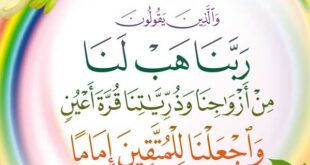 وَالَّذِينَ يَقُولُونَ
رَبَّنَا هَبْ لَنَا
مِنْ أَزْوَاجِنَا وَذُرِّيَّاتِنَا قُرَّةَ أَعْيُنٍ
وَاجْعَلْنَا لِلْمُتَّقِينَ إِمَامًا